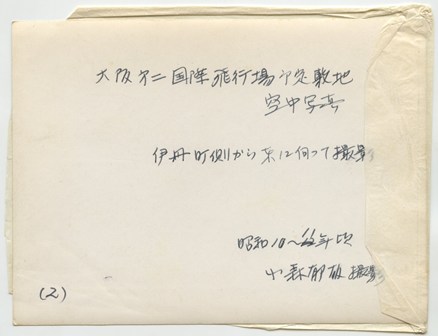 大阪第二国際飛行場予定敷地
空中写真
伊丹町側から東に向って撮影
昭和10~11年頃
小森郁敏 撮影
(2)